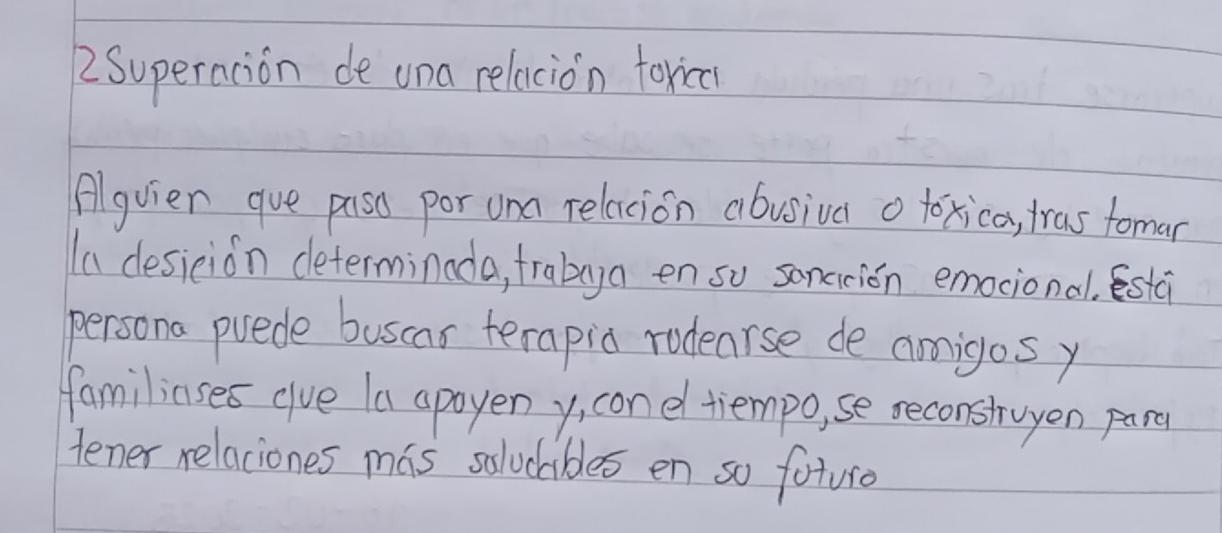 2 Superación de una relación toxica
Alguien que pasa por una relación abusiva o tóxica, tras tomar
la desición determinada, trabaja en su sanación emocional. Está
persona puede buscar terapia rodearse de amigos y
familiases que la apoyen y, con el tiempo, se reconstruyen para
tener relaciones más saludables en su futuro